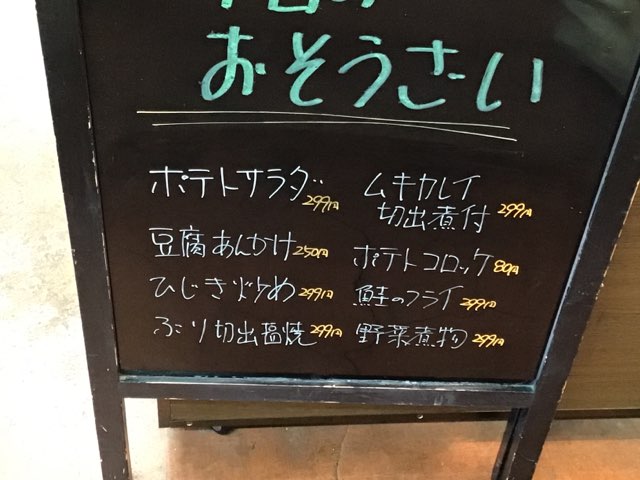 おそうさい
ポテトサラダ 299円
豆腐あんかけ 250円
ひじき炒め 299円
ぶり切出塩焼 299円
ムキカレイ
切出煮付 299円
ポテトコロッケ 80円
鮭のフライ 299円
野菜煮物 299円